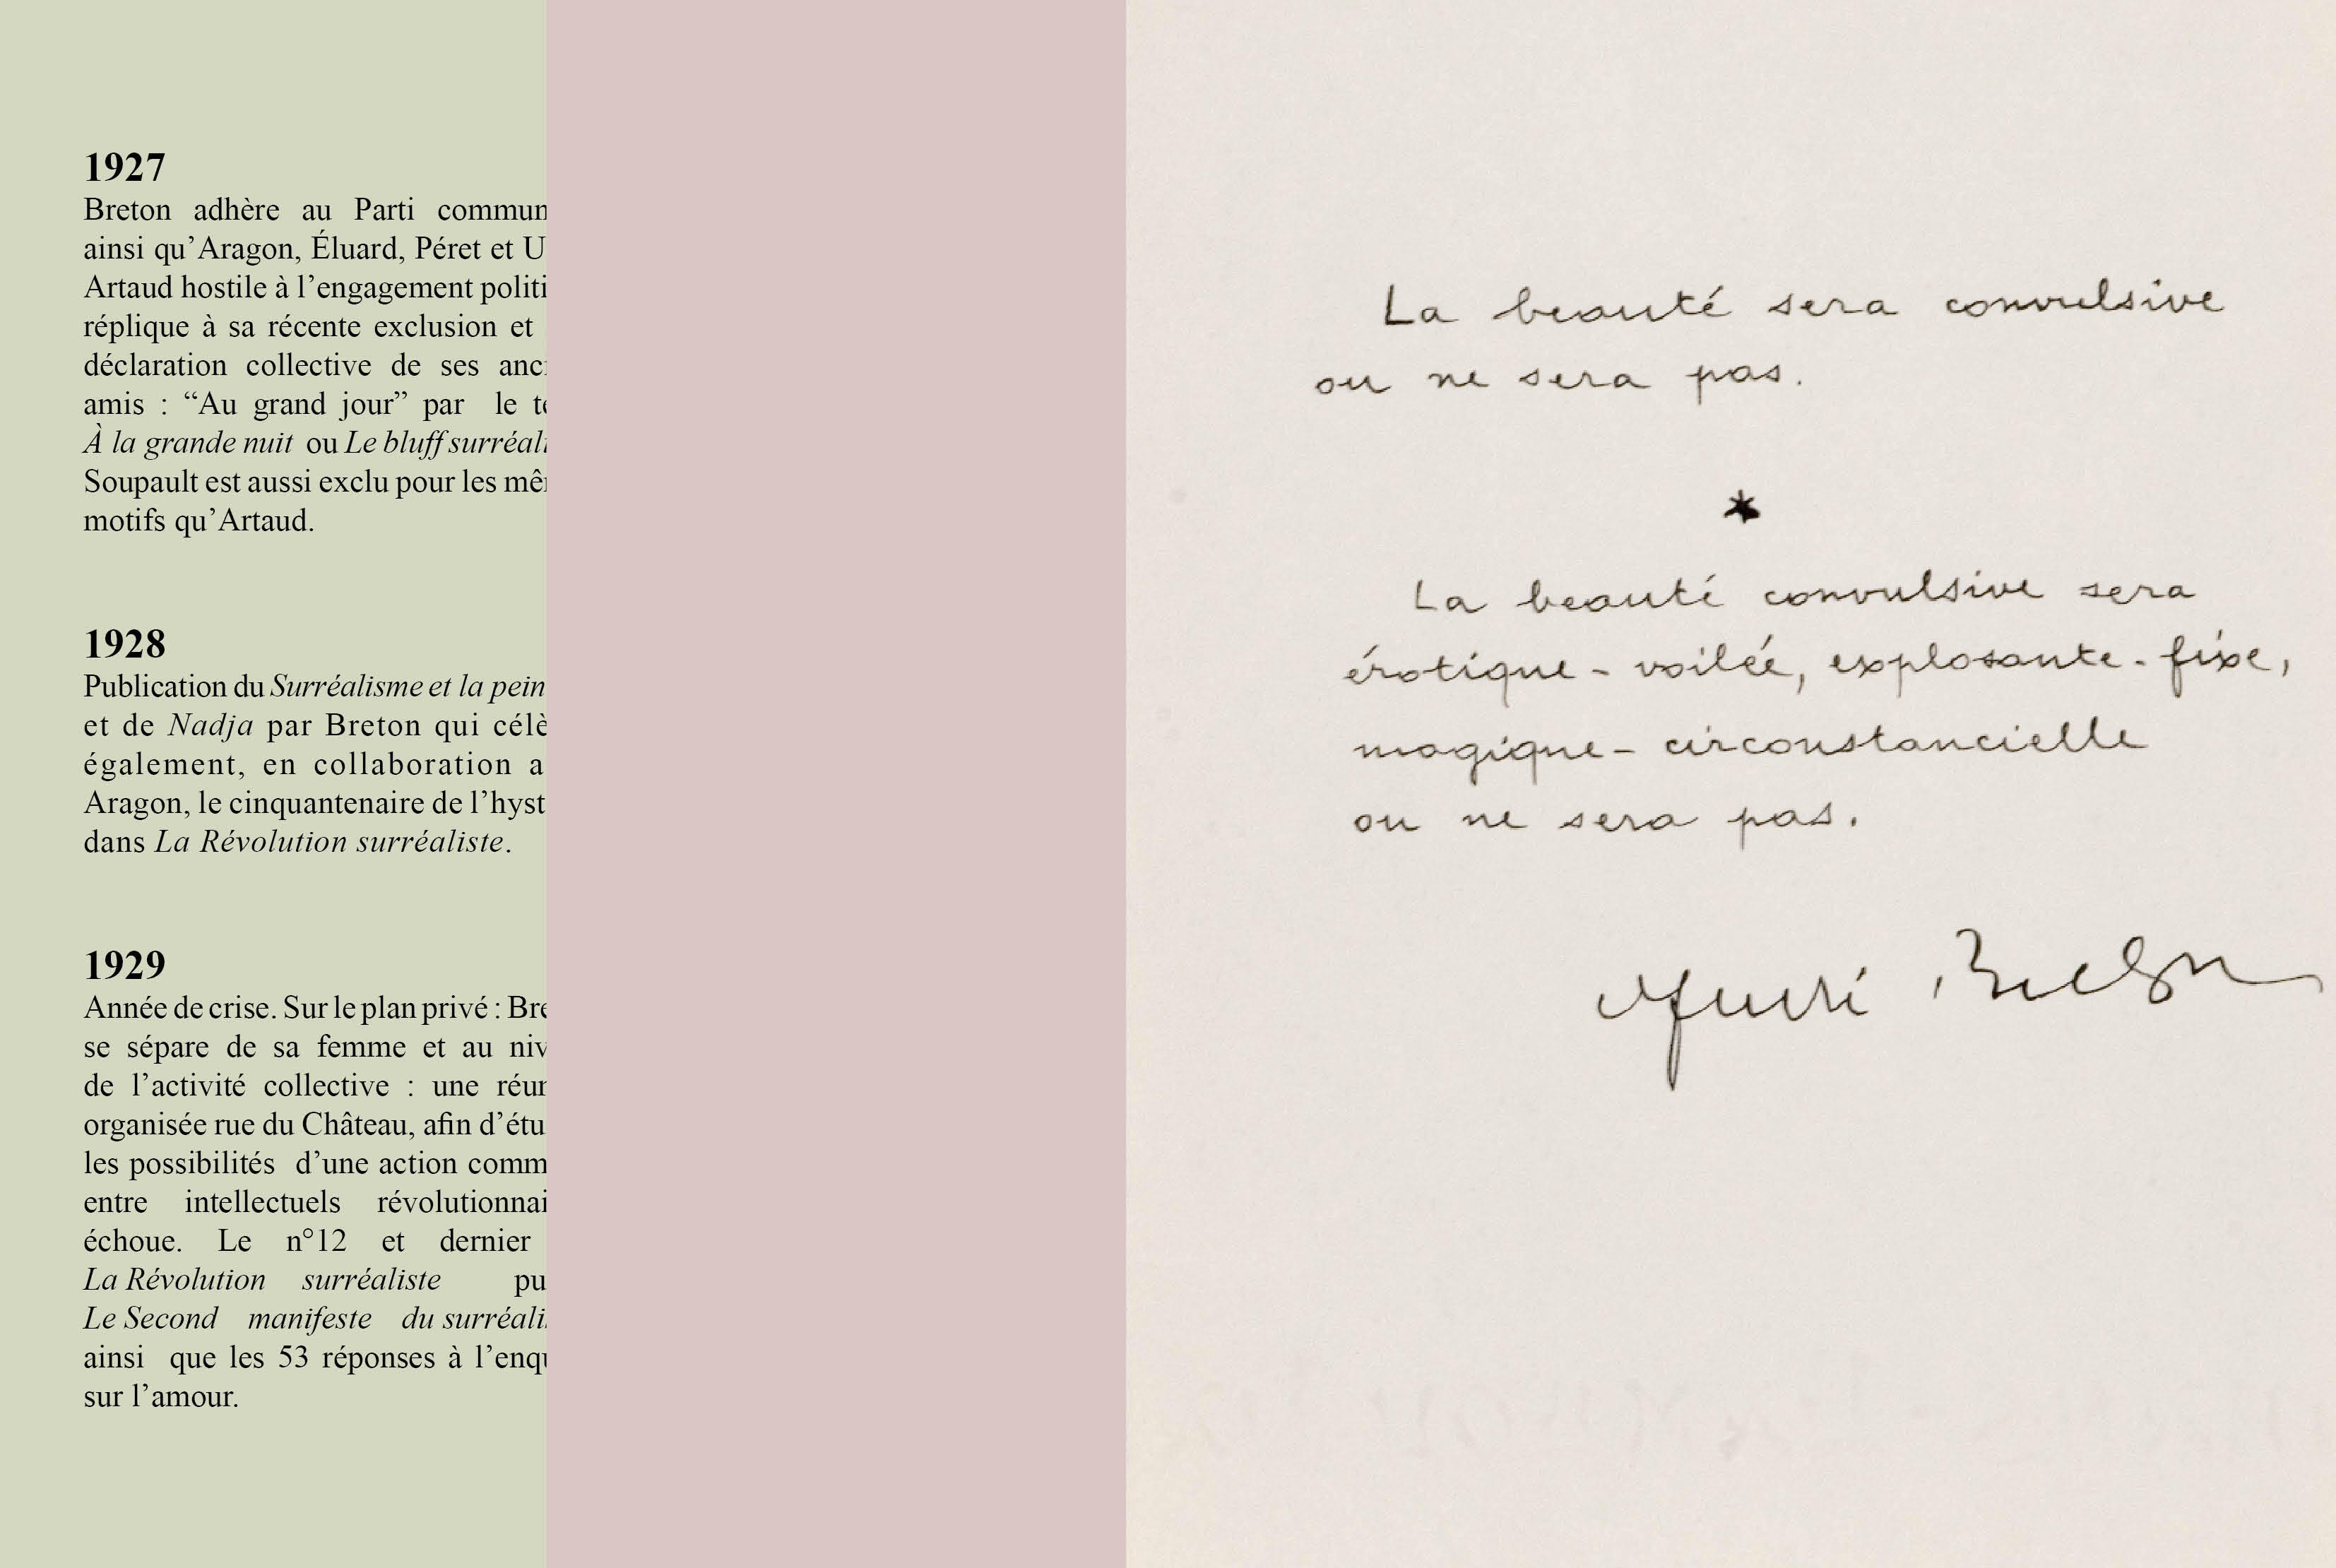 1927
Breton adhère au Parti commun
ainsi qu’Aragon, Éluard, Péret et U
Artaud hostile à l’engagement politi
réplique à sa récente exclusion et
déclaration collective de ses anc
amis : “Au grand jour” par le t
À la grande nuit ou Le bluff surréal
Soupault est aussi exclu pour les mê
motifs qu’Artaud.
1928
Publication du Surréalisme et la pein
et de Nadja par Breton qui célè
également, en collaboration a
Aragon, le cinquantenaire de l’hyst
dans La Révolution surréaliste.
1929
Année de crise. Sur le plan privé : Bre
se sépare de sa femme et au niv
de l’activité collective : une réun
organisée rue du Château, afin d’étu
les possibilités d’une action comm
entre intellectuels révolutionnai
échoue. Le n°12 et dernier
La Révolution surréaliste pu
Le Second manifeste du surréali
ainsi que les 53 réponses à l’enqu
sur l’amour.
La beauté sera convulsive
ou ne sera pas.
*
La beauté convulsive sera
érotique - voilée, explosante - fixe,
magique - circonstancielle
ou ne sera pas.
André Breton